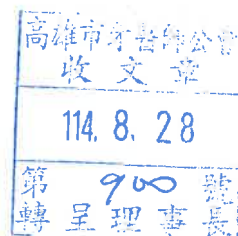 高雄市牙醫師公會
收文章
114. 8. 28
第 900 號
轉呈理事長